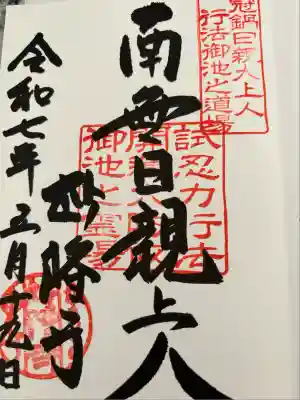 冠鍋日親大上人
行法御池之道場
南無日親上人
試忍力行法
御池之霊場
令和七年五月十九日